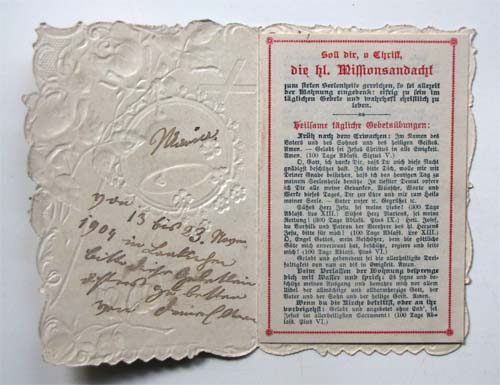 Mission
von 13 bis 23.
1909 in
Soll dir, o Christ,
die hl. Missionsandacht
zum steten Seelenheile gereichen, so sei allezeit
der Mahnung eingedenk: eifrig zu sein im
täglichen Gebete und wahrhaft christlich zu
leben.
Heilsame tägliche Gebetsübungen:
Früh nach dem Erwachen: Im Namen des
Vaters und des Sohnes und des heiligen Geistes
Amen. — Gelobt sei Jesus Christus in alle Ewigkeit.
Amen. (100 Tage Ablaß. Sixtus V.)
O, Gott, ich danke Dir, daß Du mich diese Nacht
gnädigst beschützet hast. Ich bitte Dich, wolle mir mit
Deiner Gnade beistehen, daß ich den heutigen Tag zu
meinem Seelenheile benütze. In tiefster Demut opfere
ich Dir alle meine Gedanken, Wünsche, Worte und
Werke dieses Tages, Dir zur Ehre und mir zum Heile
meiner Seele. — Vater unser etc. Gegrüßet etc.
Süßes Herz Jesu, sei meine Liebe! (300 Tage
Ablaß. Leo XIII.) Süßes Herz Mariens, sei meine
Rettung! (300 Tage Ablaß. Pius IX.) Heil. Josef,
du Vorbild und Patron der Verehrer des hl. Herzens
Jesu, bitte für mich! (100 Tage Ablaß. Leo XIII.)
O, Engel Gottes, mein Beschützer, dem die göttliche
Güte mich anvertraut hat, beschütze, regiere und leite
mich! (100 Tage Ablaß.)
Gelobt und gebenedeit sei die allerheiligste Drei-
faltigkeit von nun an bis in Ewigkeit. Amen.
Beim Verlassen der Wohnung besprenge
dich mit Wasser und sprich: O segne und be-
schütze meinen Ausgang und bewahre mich vor allem
Übel der allmächtige und allbarmherzige Gott, der
Vater und der Sohn und der heilige Geist. Amen.
Wenn du die Kirche betrittst, oder an ihr
vorbeigehst: Gelobt und angebetet ohne End', sei
Jesus im allerheiligsten Sacrament! (100 Tage Ab-
laß. Pius VI.)